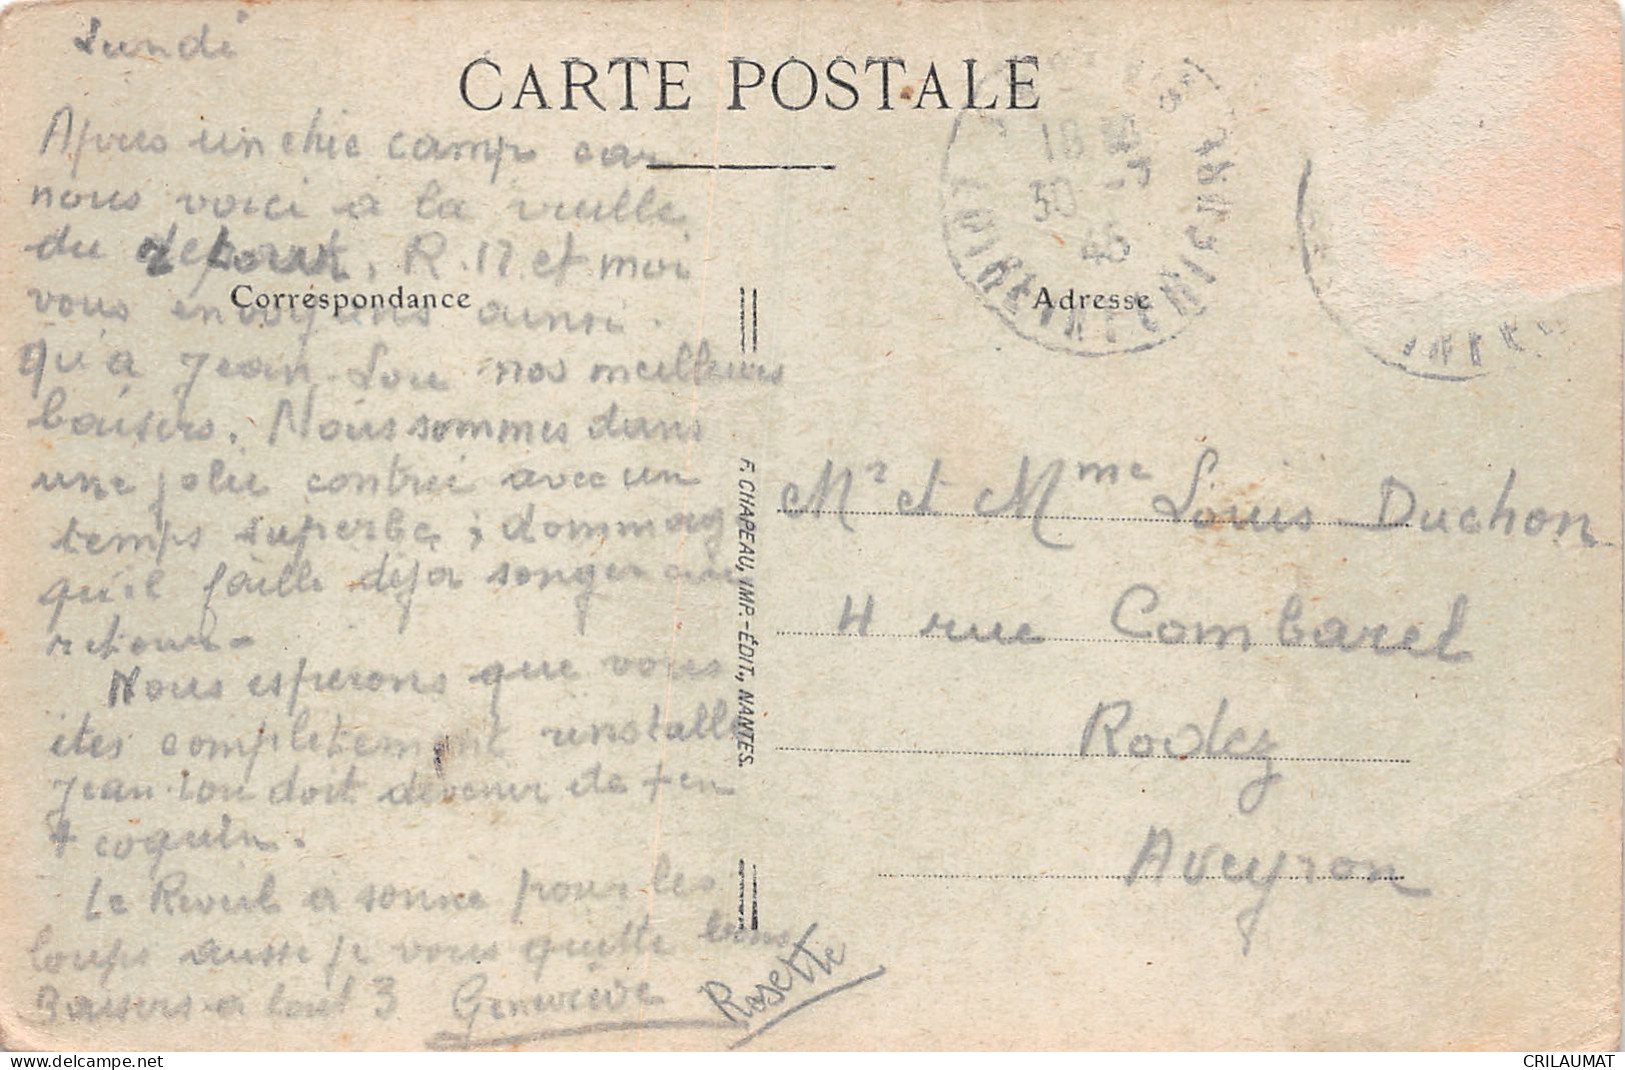 Lundi
CARTE POSTALE
Après un chic camp car
nous voici à la veille
du départ, R. 17 et moi
Correspondance
vous envoyons ainsi
qu'à Jean-Lou nos meilleurs
baisers. Nous sommes dans
une jolie contrée avec un
temps superbe, dommag
qu'il faille déjà songer au
retour-
Nous espérons que vous
êtes complètement réinstallé
Jean-Lou doit devenir de + en
+ coquin.
Le Réveil a sonné pour les
loups aussi je vous quitte bons
Baisers à tout 3 Geneviève
Rosette
F. CHAPEAU, IMP.-ÉDIT., NANTES.
Adresse
18
30 -3
46
Mr et Mme Louis Duchon
4 rue Combarel
Rodez
Aveyron
delcampe.net
CRILAUMAT